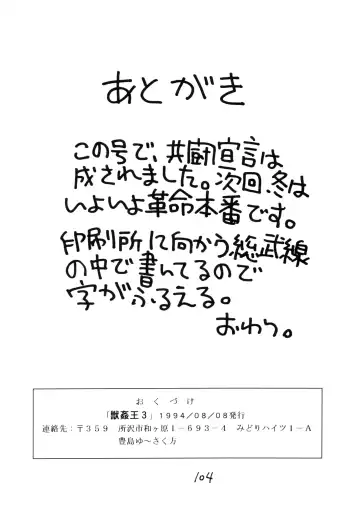 あとがき
この号で、共闘宣言は
成されました。次回、冬は
いよいよ革命本番です。
印刷所に向かう総武線
の中で書いてるので
字がふるえる。
おわり。
おくづけ
「獣姦王3」1994/08/08発行
連絡先：〒359 所沢市和ヶ原1-693-4 みどりハイツ1-A
豊島ゆ〜さく方
104